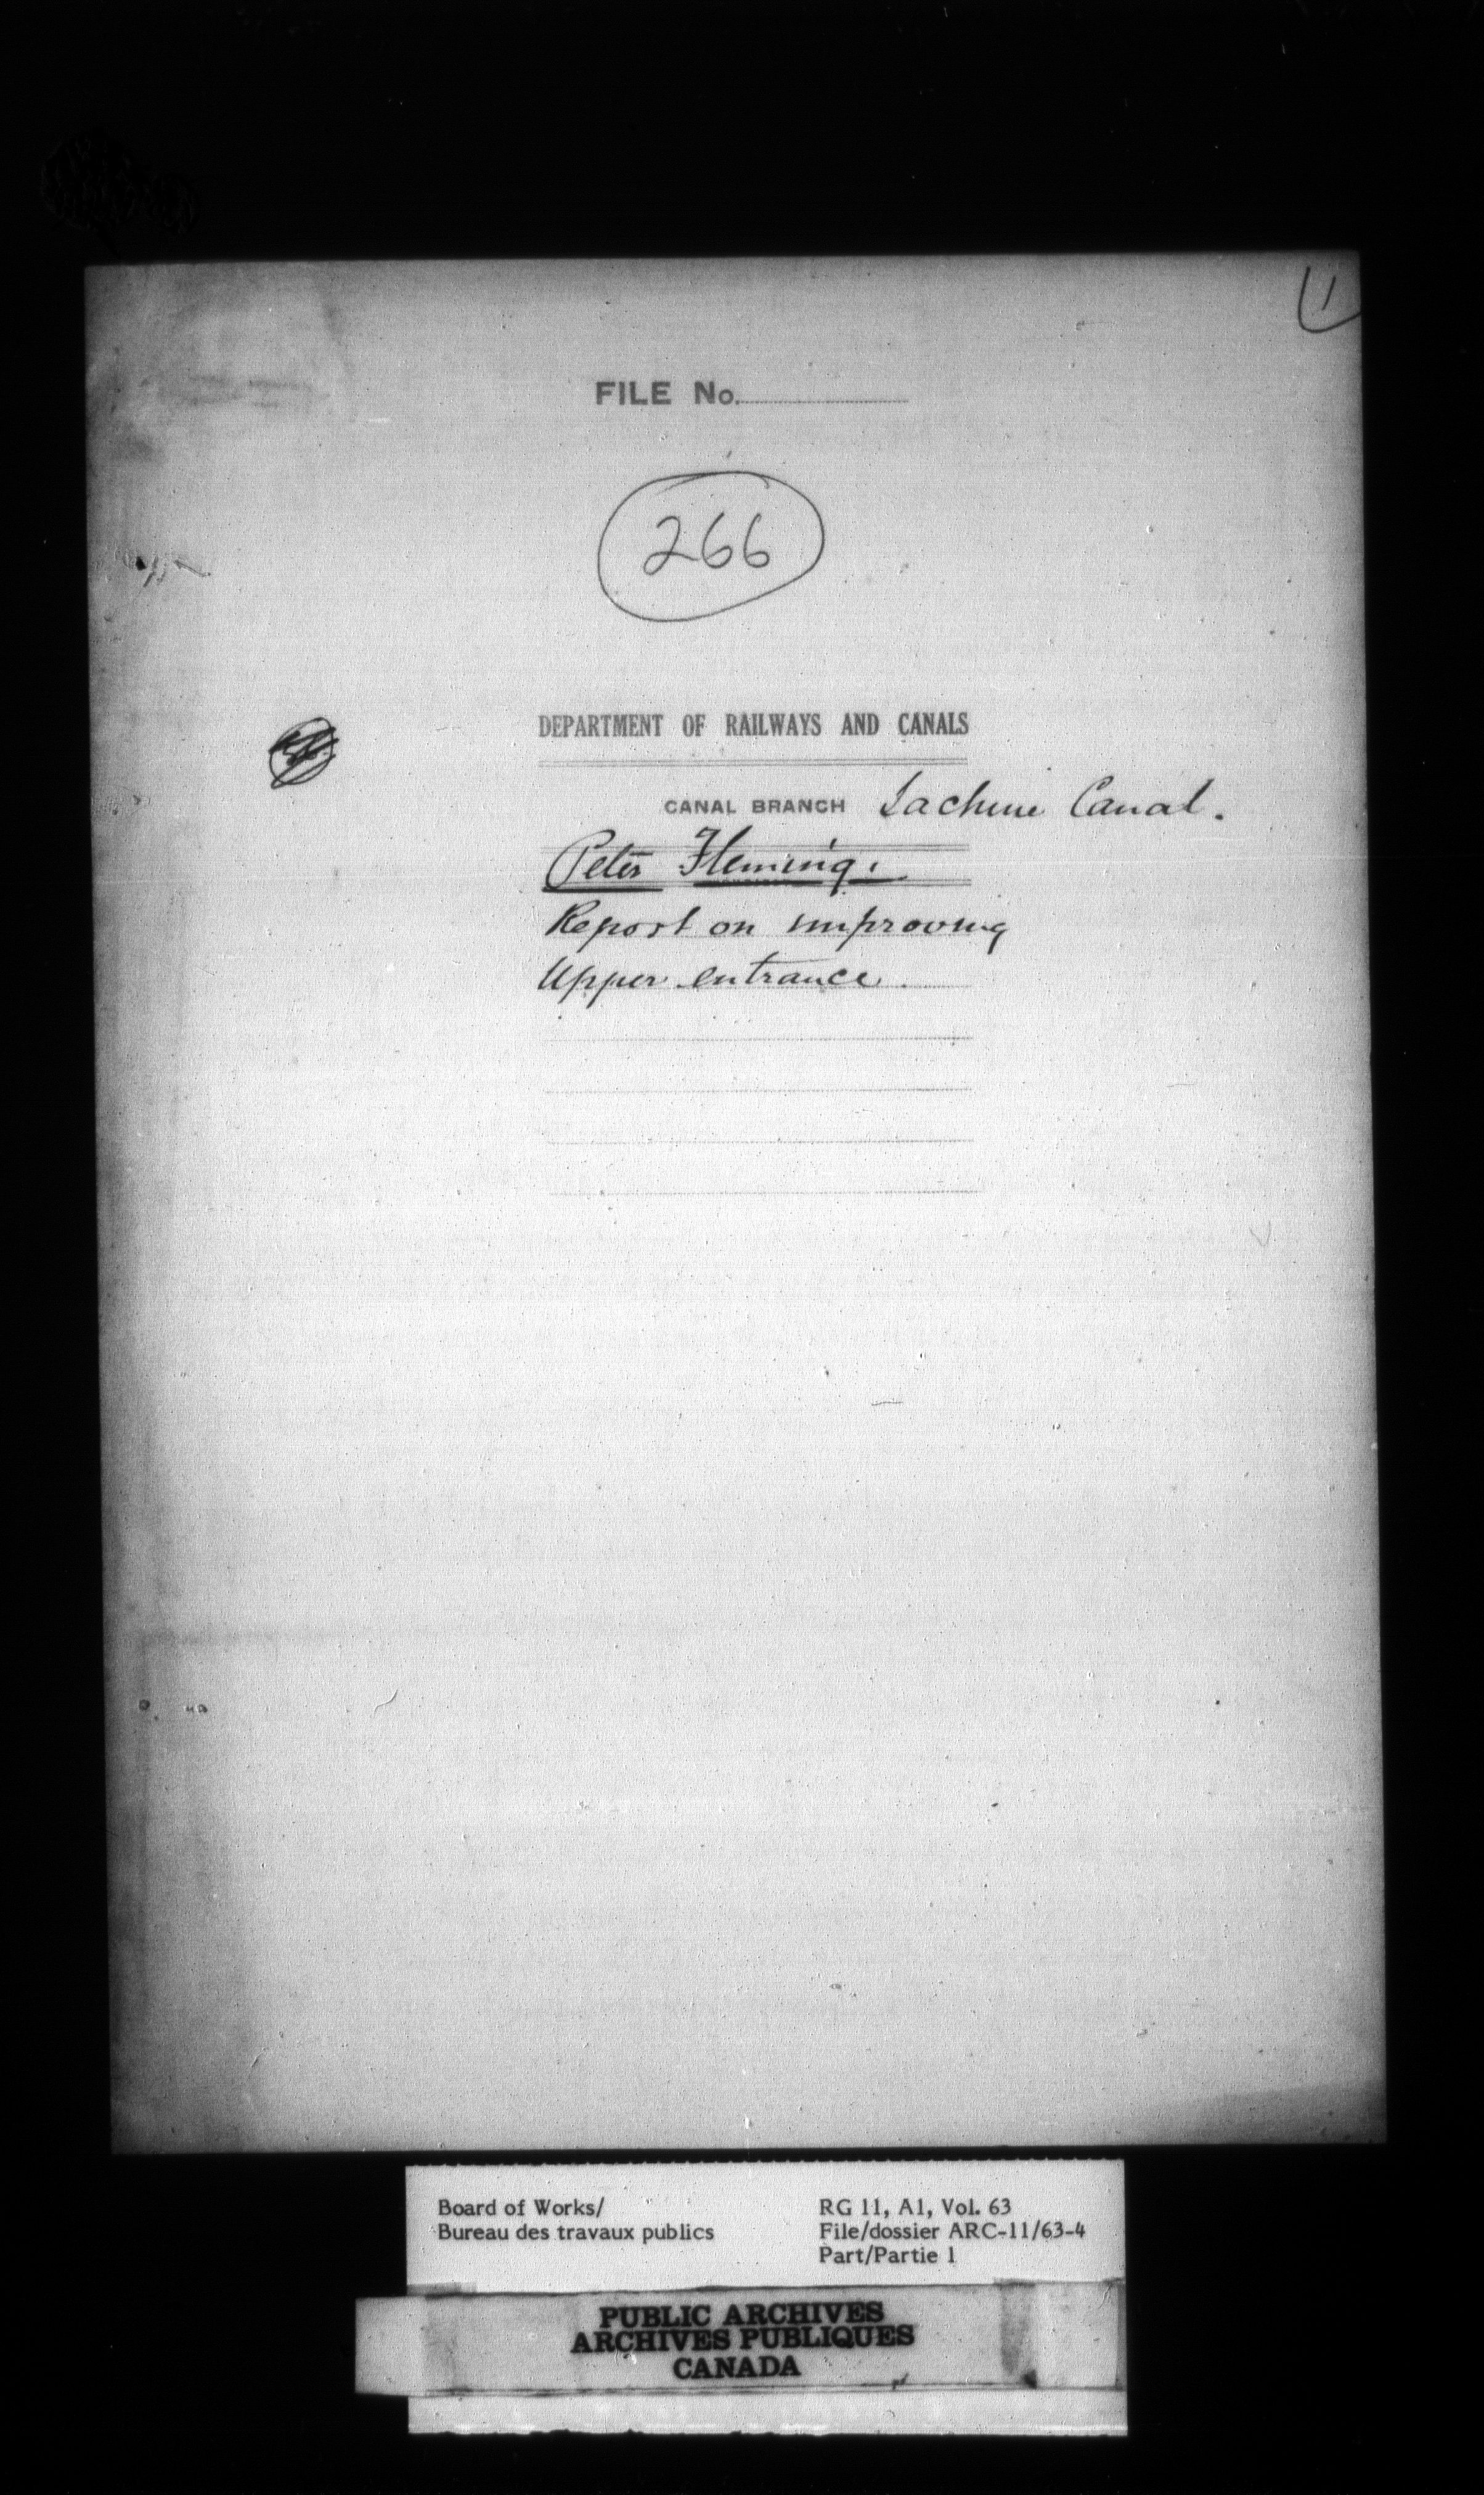 1
FILE No.
266
DEPARTMENT OF RAILWAYS AND CANALS
CANAL BRANCH Lachine Canal.
Peter Fleming.
Report on improving
Upper entrance.
Board of Works/
Bureau des travaux publics
RG 11, A1, Vol. 63
File/dossier ARC-11/63-4
Part/Partie 1
PUBLIC ARCHIVES
ARCHIVES PUBLIQUES
CANADA